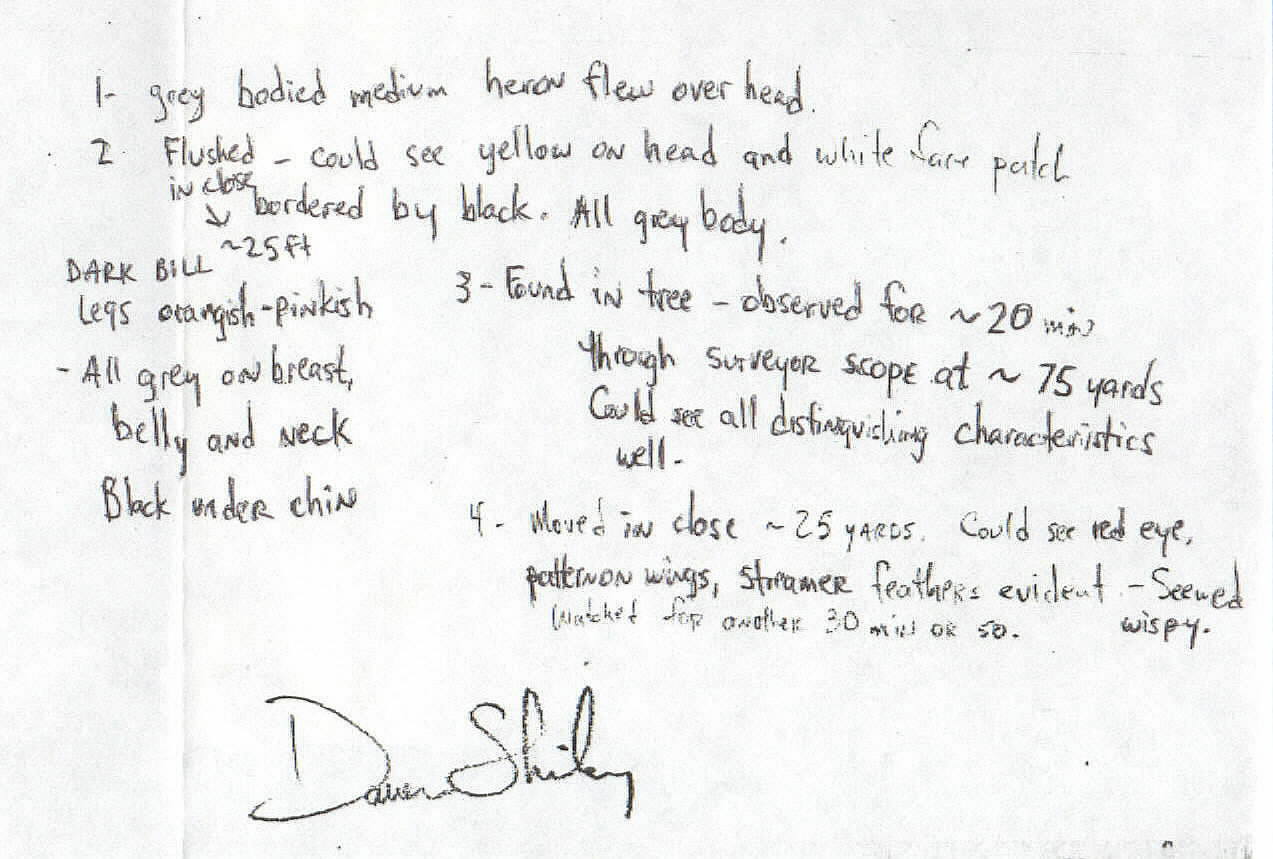 1- grey bodied medium heron flew over head.
2 Flushed - could see yellow on head and white face patch
in close
bordered by black. All grey body.
~25 ft
DARK BILL
Legs orangish-pinkish
- All grey on breast,
belly and neck
Black under chin
3 - Found in tree - observed for ~20 mins
through surveyor scope at ~ 75 yards
Could see all distinquishing characteristics
well.
4 - Moved in close ~25 YARDS. Could see red eye,
pattern on wings, streamer feathers evident - Seemed
wispy.
Watched for another 30 min or so.
Shirley